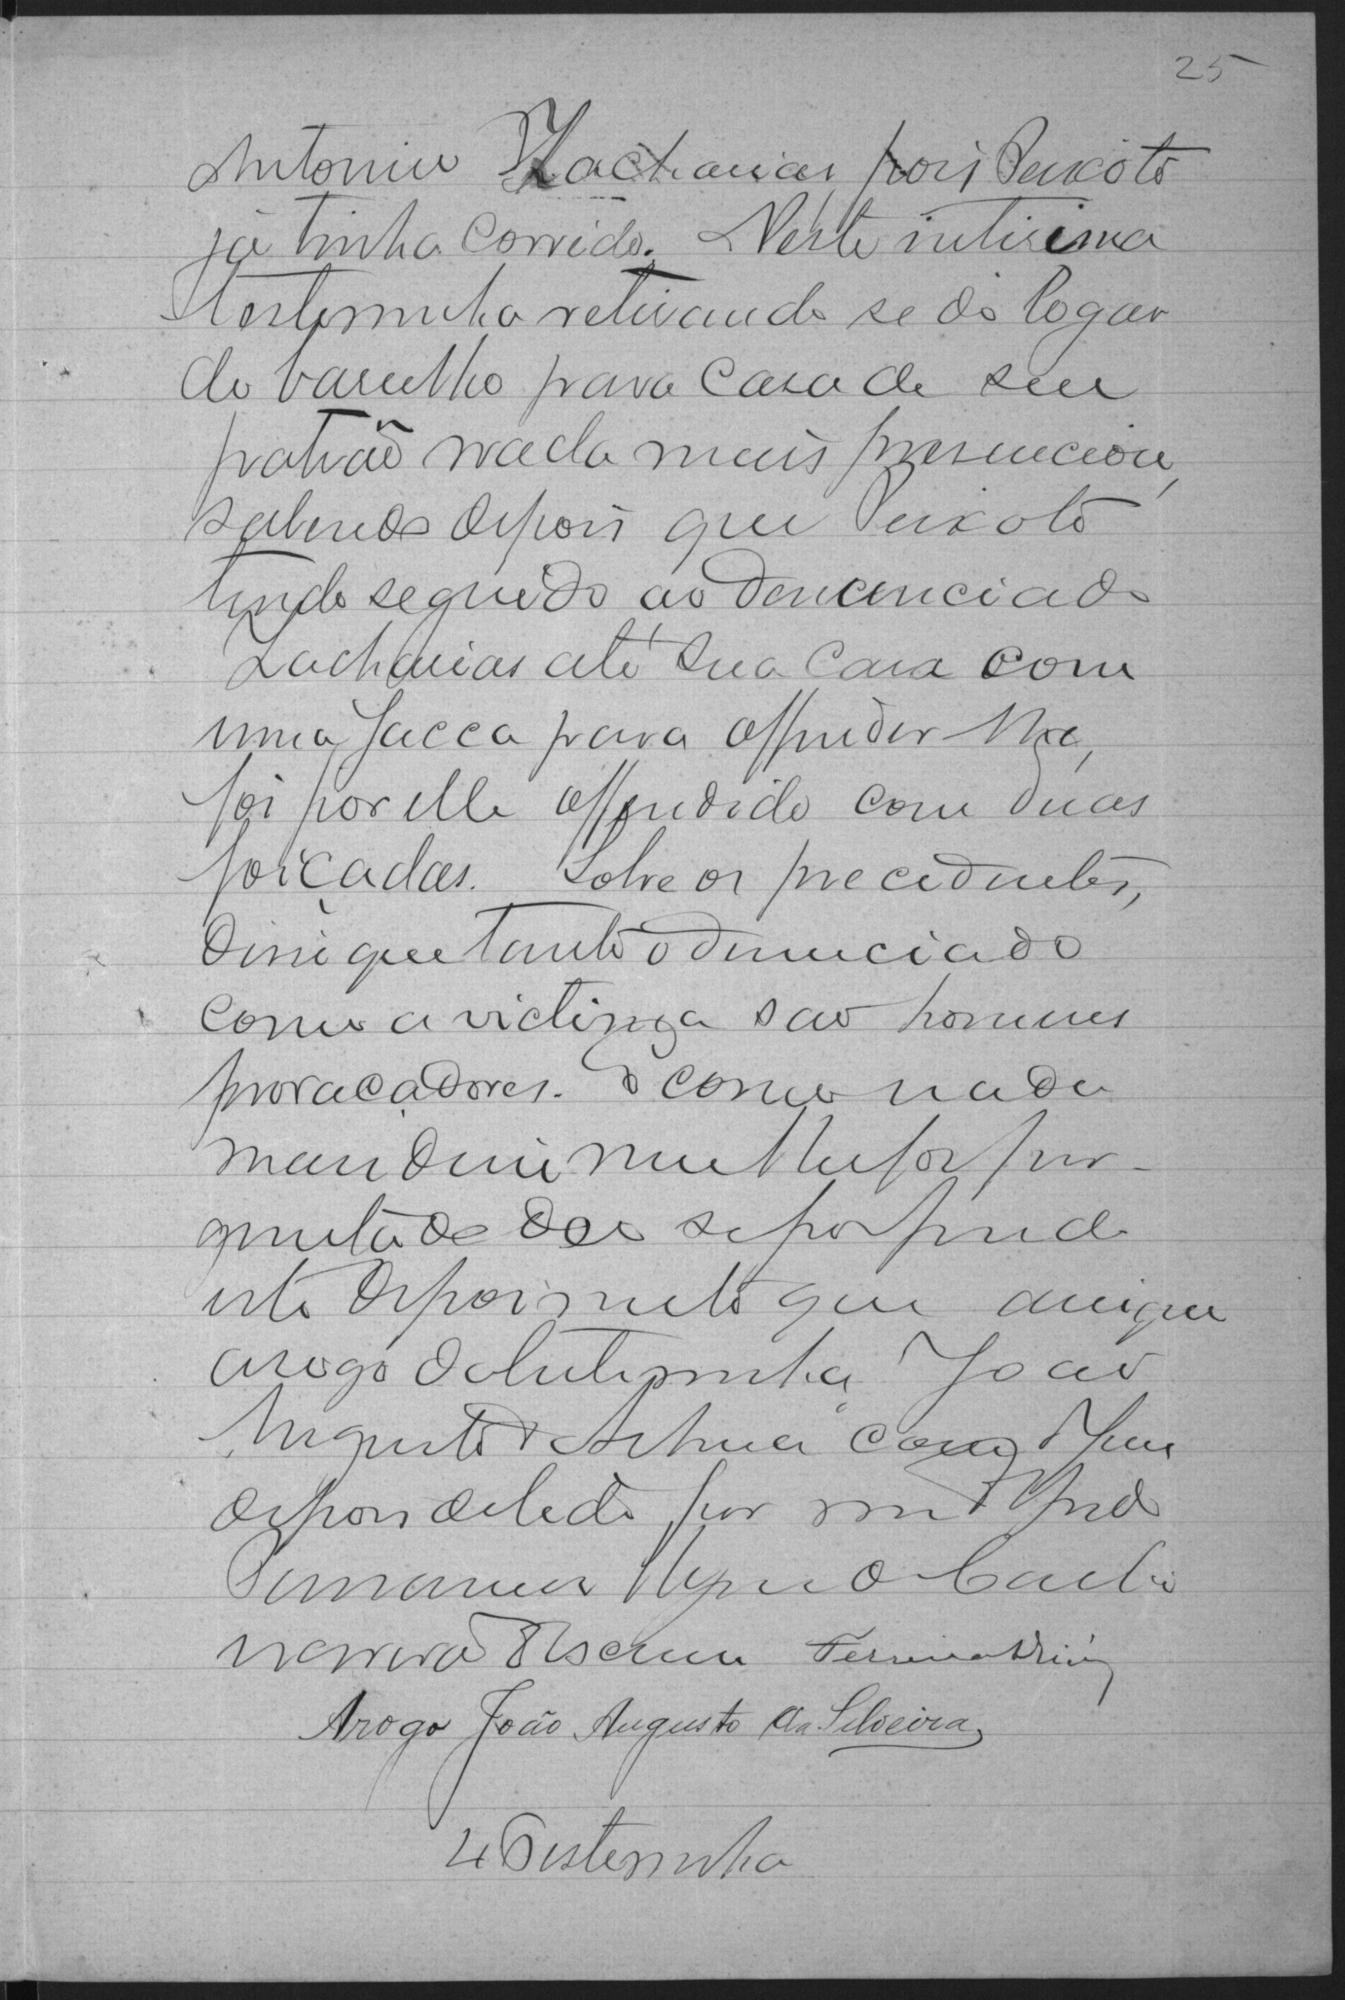 25
Antonio Zacharias, pois Peixoto
já tinha corrido. Neste interim a
testemunha retirando se do logar
do barulho para casa de seu
patrão nada mais presenciou,
sabendo depois que Peixoto
tendo seguido ao denunciado
Zacharias até sua casa com
uma facca para offender lhe,
foi por elle offendido com duas
foiçadas. Sobre os precedentes,
disse que tanto o denunciado
como a victima são homens
provocadores. E como nada
mais disse nem lhe foi per-
guntado deu se por findo
este depoimento que assigna
a rogo da testemunha João
Augusto da Silveira com o Juiz
depois de lido por mim
o
escrevi
Arogo João Augusto da Silveira
4ª Testemunha